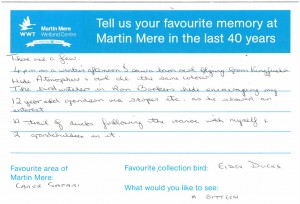 WWT
Martin Mere
Wetland Centre
Tell us your favourite memory at
Martin Mere in the last 40 years
There are a few.
4 pm on a winters afternoon & saw a barn owl flying from Kingfisher
hide Atmosphere & owl all the same colour
The bird watchers in Ron Barkers hide encouraging my
12 year old grandson use scopes etc. as he showed an
interest
A trail of ducks following the canoe with myself &
2 grandchildren in it.
Favourite area of
Martin Mere:
Canoe Safari
Favourite collection bird: Eider Ducks
What would you like to see:
A Bittern